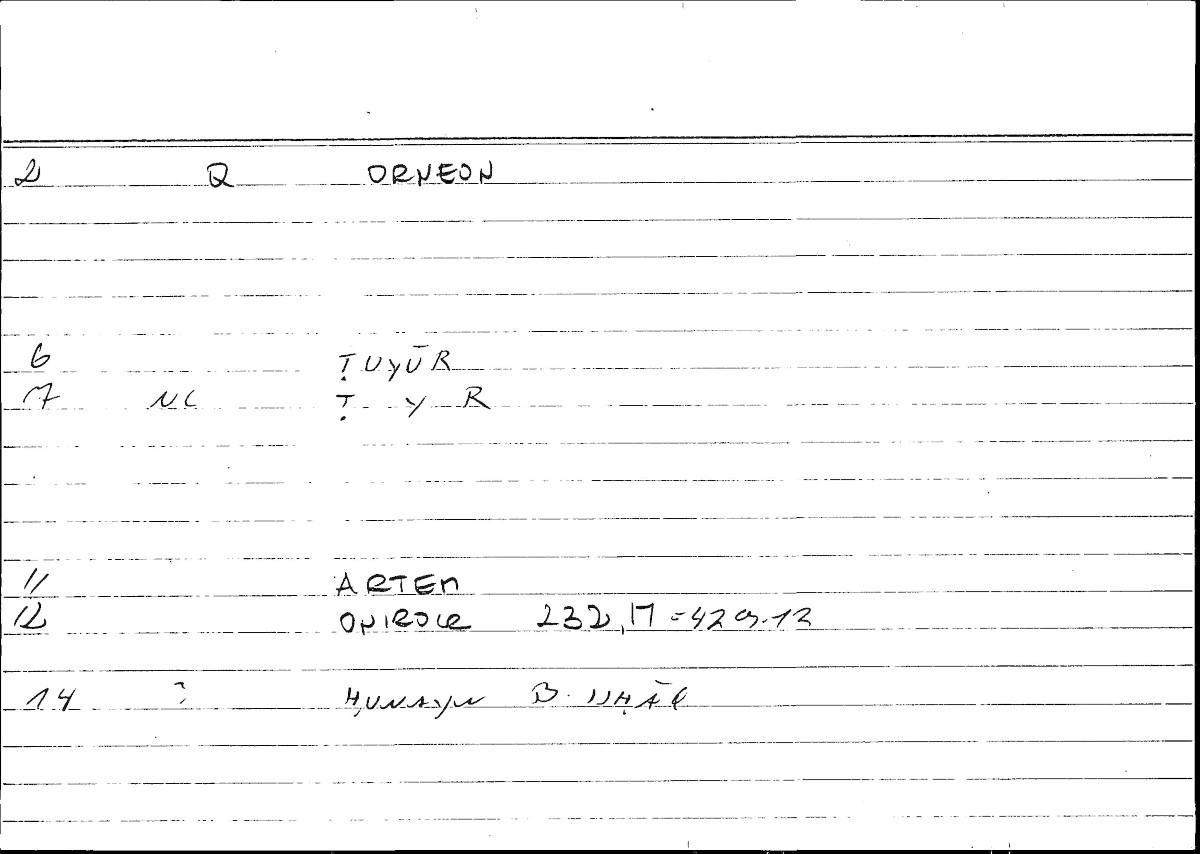 2 Q ORNEON
6 ṬUYŪR
7 NC Ṭ Y R
11 ARTEM
12 ONIROCR 232,17 = 429.12
14 ? ḤUNAYN B. ISḤĀQ